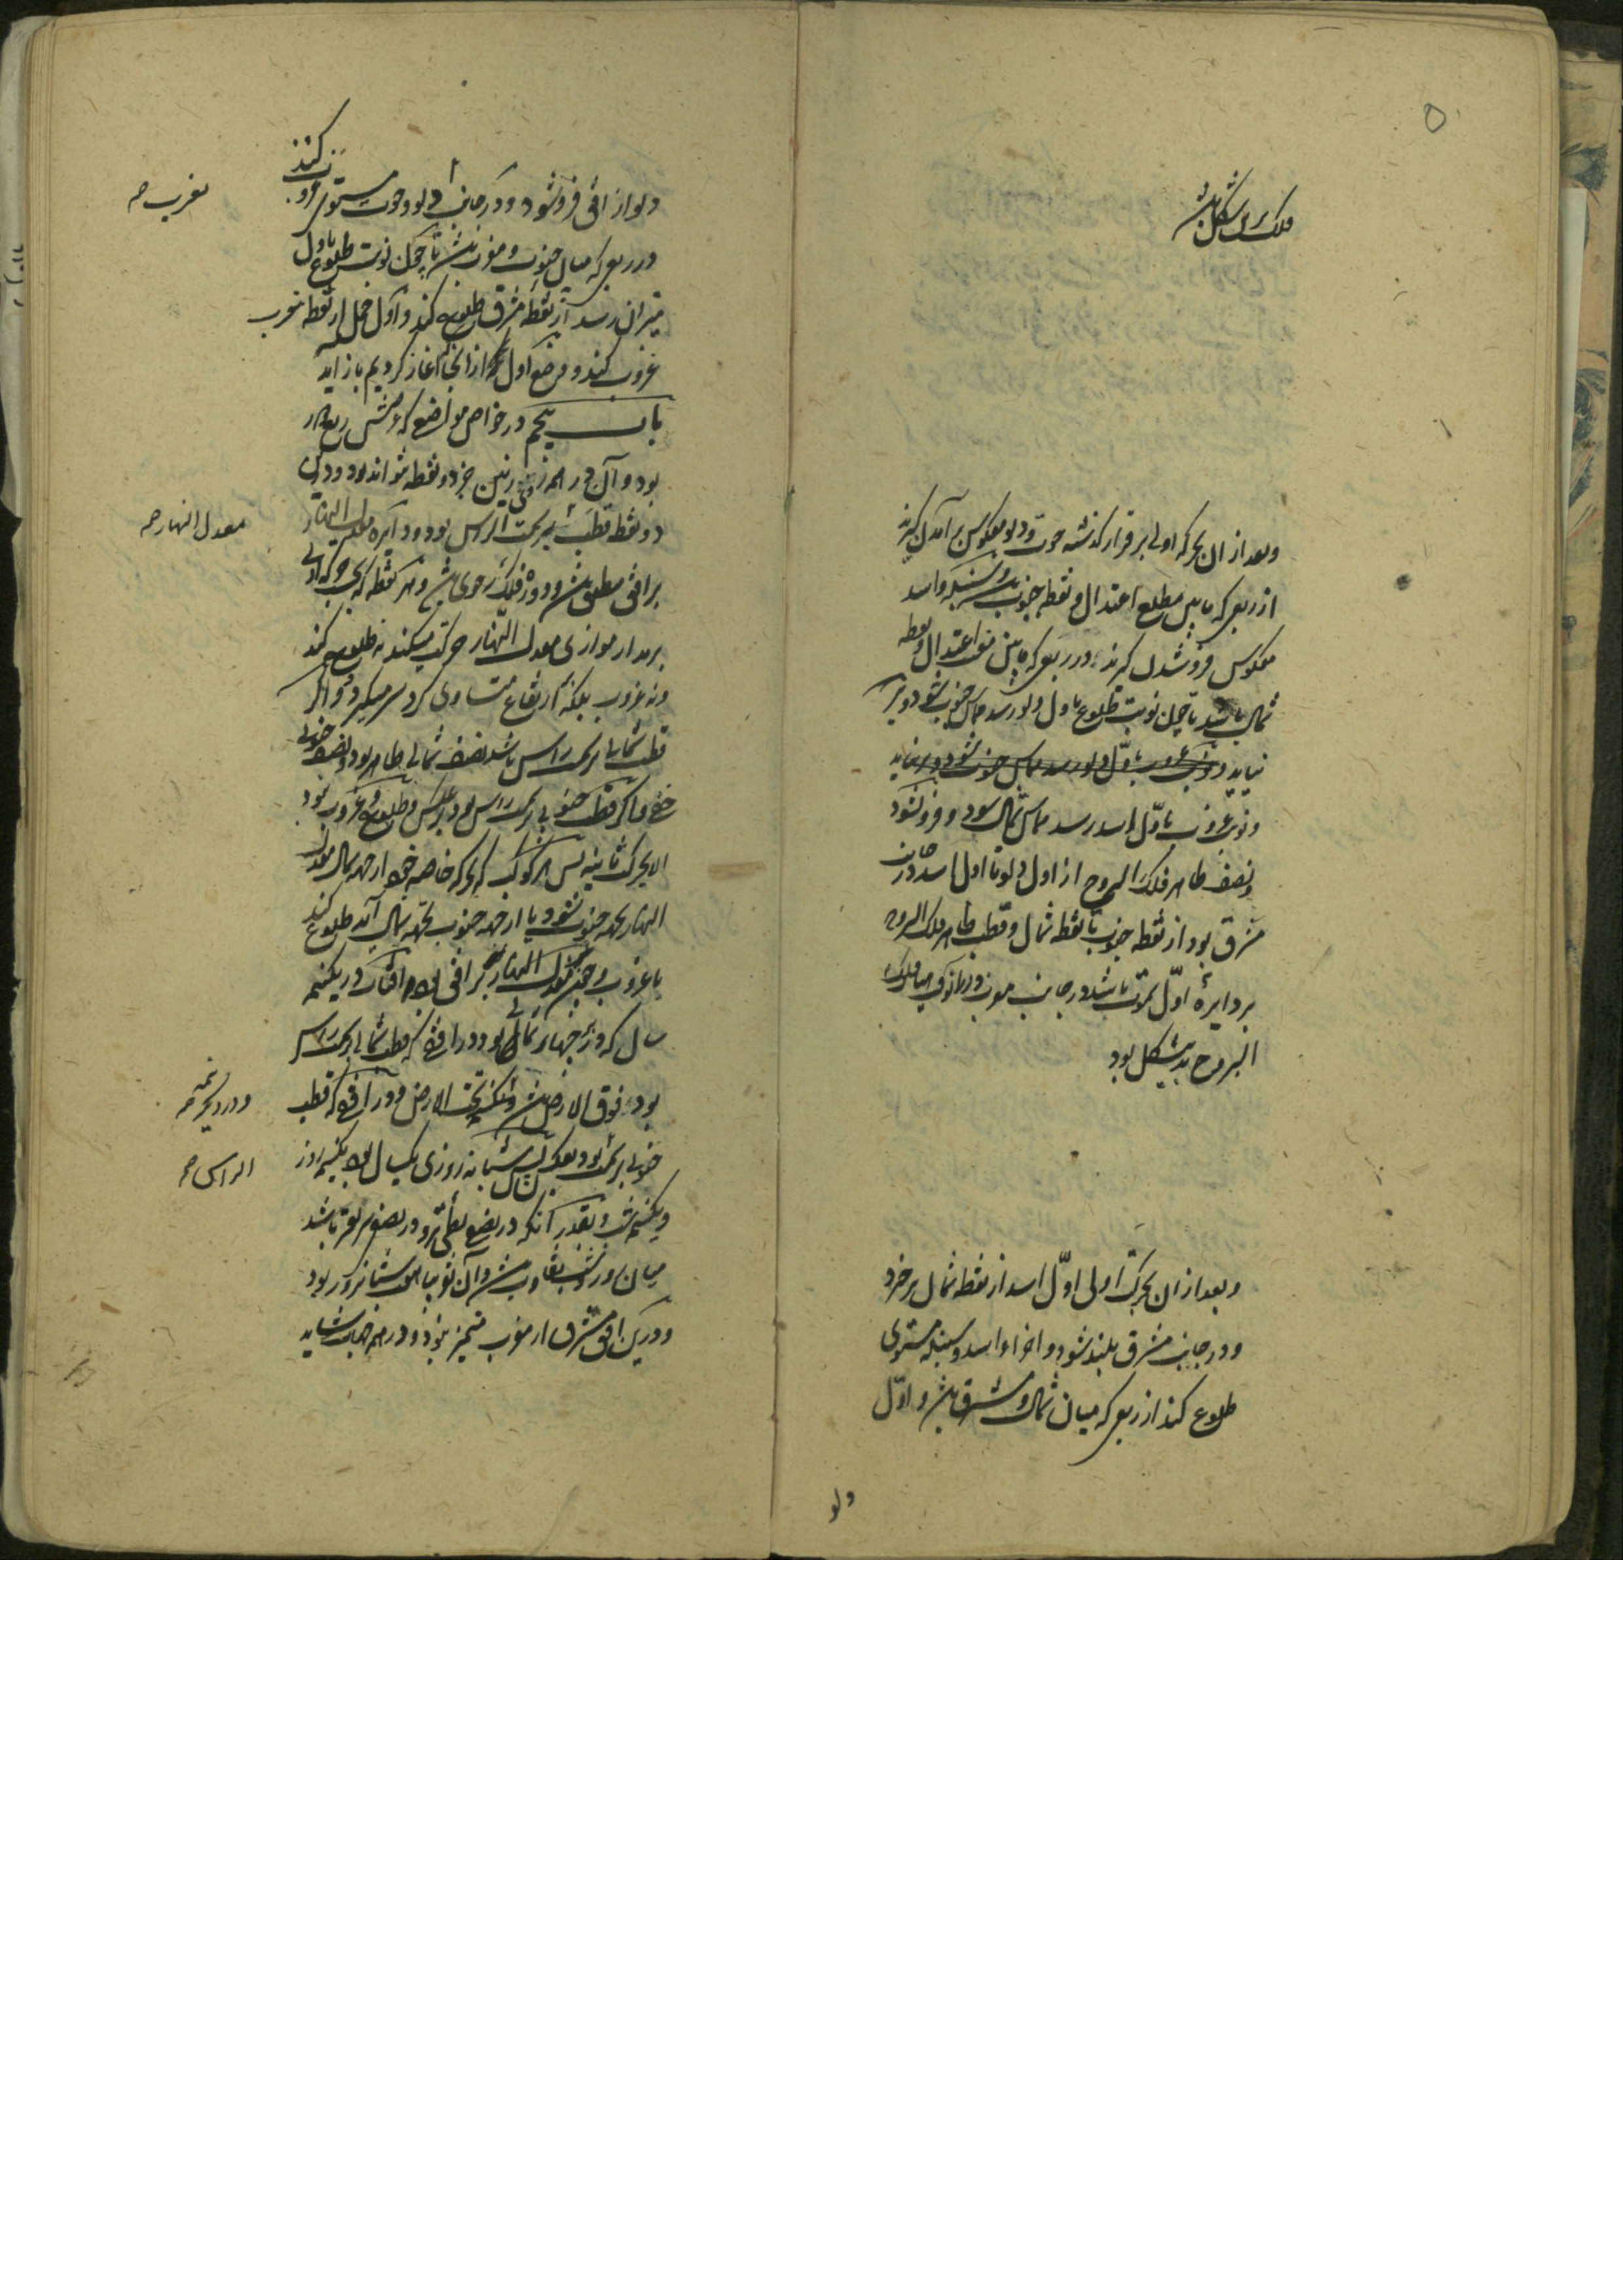 فلک برین شکل باشد
وبعد از ان بحرکه اولی بر قرار گذشته حوت ودلو معکوس برآمدن گیرند
از ربعی که مابین مطلع اعتدال ونقطه جنوب بود وسنبله واسد
معکوس فروشدن گیرند در ربعی که مابین مغیب اعتدال ونقطه
شمال باشد تا چون نوبت طلوع باول دلو رسد مماس جنوب شود وبر
نیاید ونوبت غروب باول دلو رسد مماس جنوب شود وبر نیاید
ونوبت غروب باول اسد رسد مماس شمال شود وفرو نشود
ونصف ظاهر فلک البروج از اول دلو تا اول اسد در جانب
مشرق بود از نقطه جنوب تا نقطه شمال وقطب ظاهر فلک البروج
بر دایره اول سموت باشد در جانب مغرب ودر آن وقت فلک
البروج بدین شکل بود
وبعد از ان بحرکت اولی اول اسد از نقطه شمال برخیزد
ودر جانب مشرق بلند شود واجزاء اسد وسنبله مستوی
طلوع کند از ربعی که میان شمال ومشرق باشد واول
دلو
دلو از افق فروشود ودر جانب دلو وحوت مستوی غروب کنند
در ربعی که میان جنوب ومغرب باشد تا چون نوبت طلوع باول
میزان رسد از نقطه مشرق طلوع کند واول حمل از نقطه مغرب
غروب کند ووضع اول که از انجا آغاز کردیم باز آید
باب پنجم در خواص مواضعی که عرضش ربع دور
بود وآن در همه روی زمین جز دو نقطه نتواند بود ودرین
دو نقطه قطب بر سمت الراس بود ودایره معدل النهار
بر افق منطبق باشد ودور فلک رحوی باشد وهر نقطه که بحرکه اولی
بر مدار موازی معدل النهار حرکت میکند نه طلوع کند
ونه غروب بلکه بر ارتفاع متساوی گرد سر میگردد واگر
قطب شمالی بر سمت راس باشد نصف شمالی ظاهر بود ونصف جنوبی
خفی واگر قطب جنوبی بر سمت راس بود برعکس وطلوع وغروب نبود
الا بحرکت ثانیه پس هر کوکب که بحرکه خاصه خود از جهه شمال معدل
النهار بجهه جنوب شود یا از جهه جنوب بجهه شمال آید طلوع کند
یا غروب وچون معدل النهار بر افق بود آفتاب در یک نیمه
سال که در بروج شمالی بود در افقی که قطب شمالی بر سمت راس
بود فوق الارض باشد ودیگر تحت الارض ودر افقی که قطب
جنوبی بر سمت بود بعکس پس شبانه روزی یکسال بود یک نیمه روز
ویک نیمه شب وبقدر آنکه در نصفی بطی تر ودر نصفی سریع تر باشد
میان روز وشب تفاوت باشد وآن شبانروز بود
ودرین افق مشرق از مغرب متمیز نبود ودر همه جهات شاید
بغرب صح
معدل النهار صح
ودر دیگر نیمه صح
الراس صح